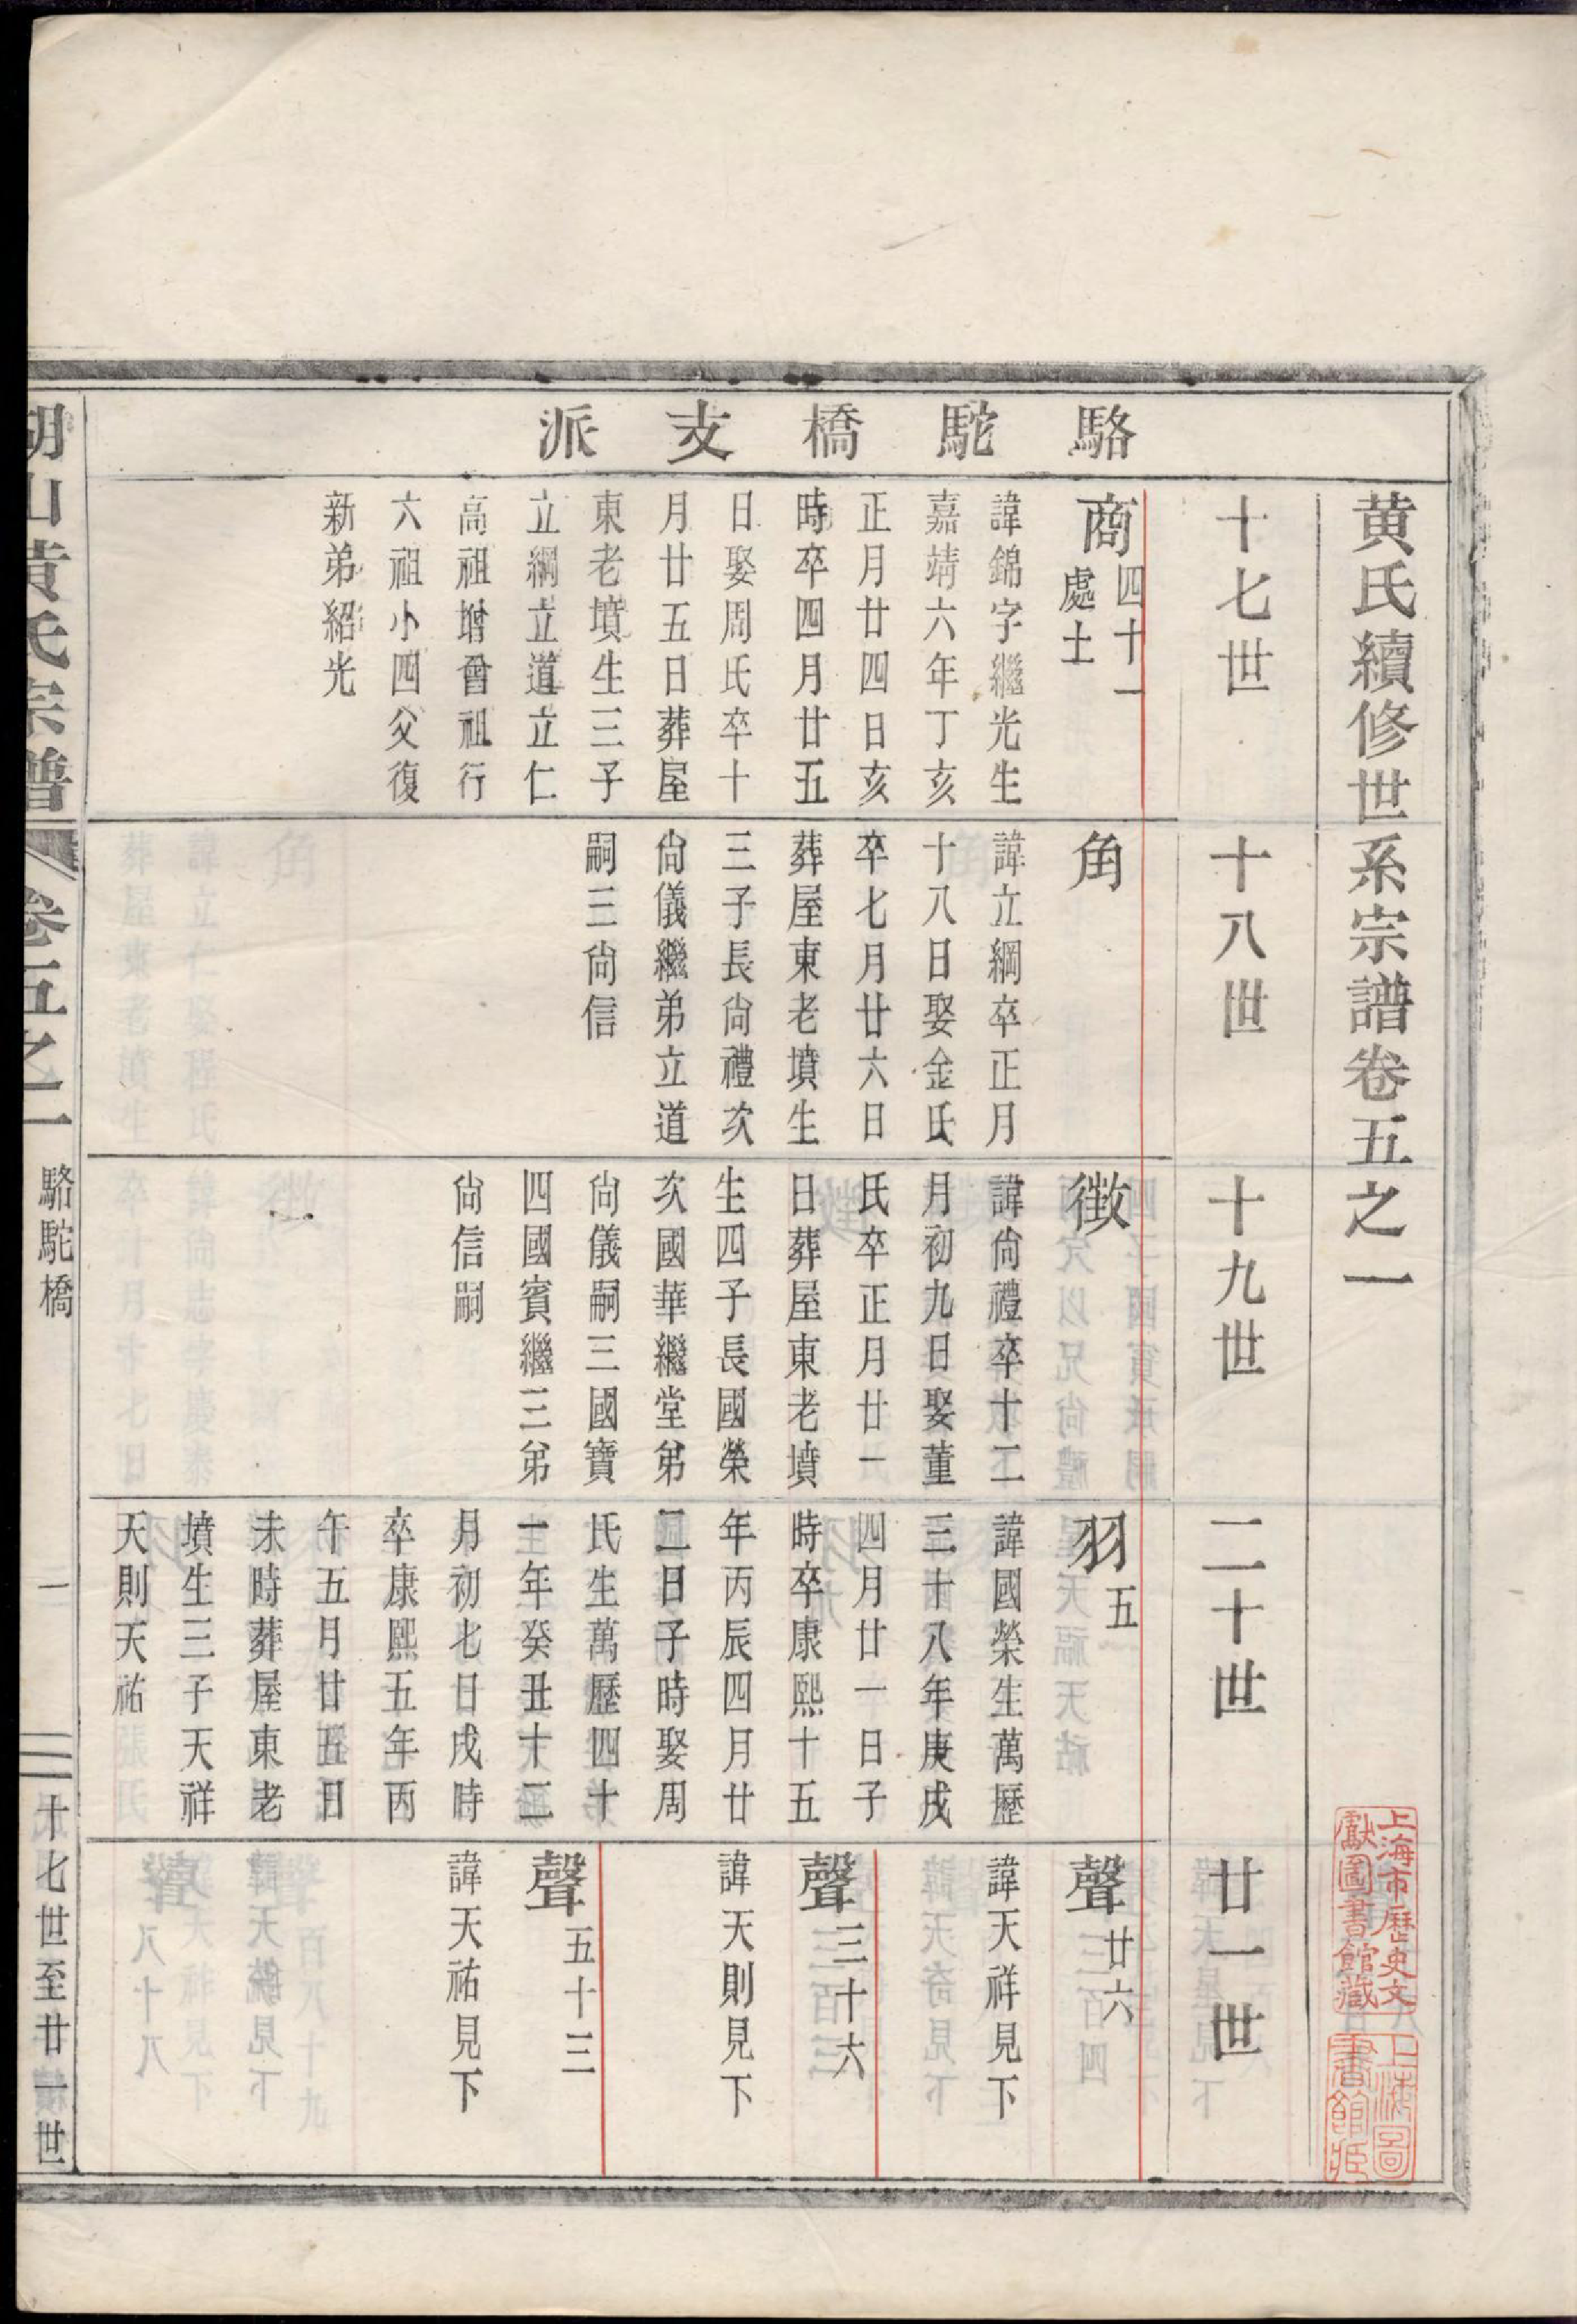 駱駝橋支派
黄氏續修世系宗譜卷五之一
十七世
商四十一
處士
諱錦字繼光生
嘉靖六年丁亥
正月廿四日亥
時卒四月廿五
日娶周氏卒十
月廿五日葬屋
東老墳生三子
立綱立道立仁
高祖增曾祖行
六祖小四父復
新弟紹光
十八世
角
諱立綱卒正月
十八日娶金氏
卒七月廿六日
葬屋東老墳生
三子長尙禮次
尙儀繼弟立道
嗣三尙信
十九世
徴
諱尙禮卒十二
月初九日娶董
氏卒正月廿一
日葬屋東老墳
生四子長國榮
次國華繼堂弟
尙儀嗣三國寶
四國賓繼三弟
尙信嗣
二十世
羽五
諱國榮生萬歷
三十八年庚戌
四月廿一日子
時卒康熙十五
年丙辰四月廿
二日子時娶周
氏生萬歷四十
一年癸丑十二
月初七日戌時
卒康熙五年丙
午五月廿五日
未時葬屋東老
墳生三子天祥
天則天祐
廿一世
聲廿六
諱天祥見下
聲三十六
諱天則見下
聲五十三
諱天祐見下
上海市歷史文
獻圖書館藏
上海圖
書館藏
山黃氏宗譜
卷五之一
駱駝橋
一
十七世至廿一世